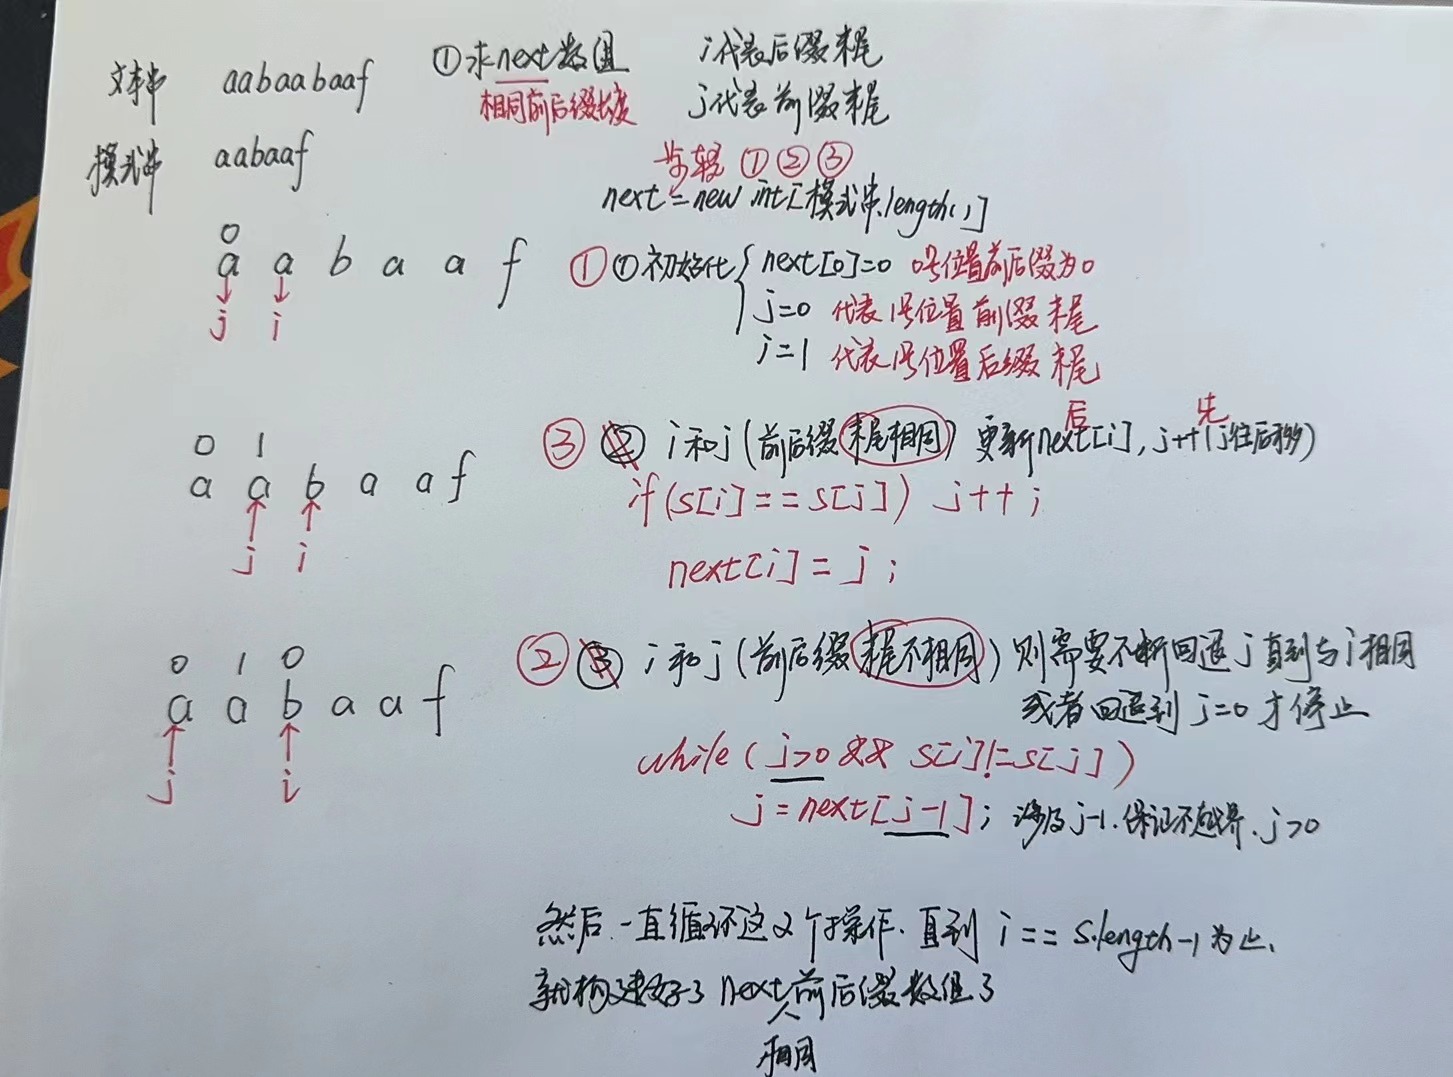 文本串 aabaabaaf ①求next数组 i代表后缀末尾
相同前后缀长度 j代表前缀末尾
模式串 aabaaf
步骤 ①②③
next = new int[模式串.length()]
0
a a b a a f
j i
① ①初始化 next[0]=0 0号位置前后缀为0
j=0 代表1号位置前缀末尾
i=1 代表1号位置后缀末尾
后 先
③ ② i和j(前后缀末尾相同) 更新next[i], j++(j往后移)
if(s[i]==s[j]) j++;
next[i]=j;
0 1
a a b a a f
j i
② ③ i和j(前后缀末尾不相同)则需要不断回退j直到与i相同
或者回退到j=0才停止
while(j>0 && s[i]!=s[j])
j=next[j-1]; 涉及j-1.保证不越界.j>0
0 1 0
a a b a a f
j i
然后一直循环这2个操作.直到i==s.length-1为止.
就构建好了next前后缀数组了
相同